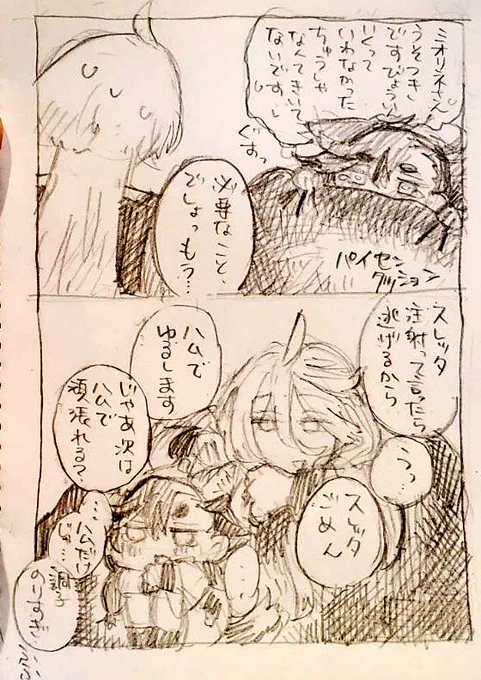 ミオリネさん
うそつき
ですびょういん
いくって
いわなかった
ちゅうしゃ
なんてきいて
ないです
ぐすっ
パイセン
クッション
必要なこと、
でしょっもう…
スレッタ
注射って言ったら
逃げるから
うっ…
スレッタ
ごめん
ハムで
ゆるします
じゃあ次は
ハムで
頑張れる?
…
…ハムだけ
じゃ…
調子
のりすぎ